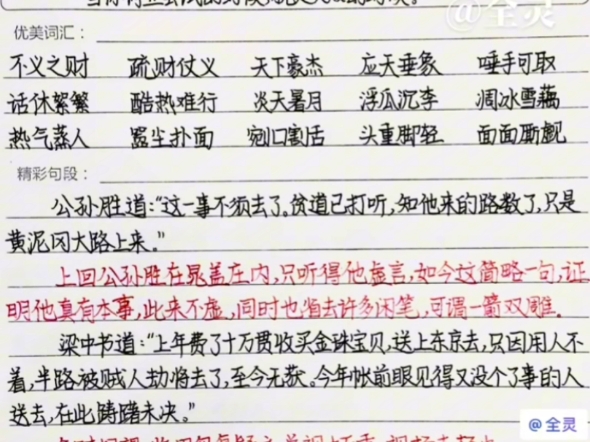 @全灵
优美词汇:
不义之财 疏财仗义 天下豪杰 应天垂象 唾手可取
话休絮繁 酷热难行 炎天暑月 浮瓜沉李 凋冰雪藕
热气蒸人 嚣尘扑面 剜口割舌 头重脚轻 面面厮觑
精彩句段:
公孙胜道:“这一事不须去了。贫道已打听,知他来的路数了,只是
黄泥冈大路上来。”
上回公孙胜在晁盖庄内,只听得他虚言,如今这简略一句,证
明他真有本事,此来不虚,同时也省去许多闲笔,可谓一箭双雕。
梁中书道:“上年费了十万贯收买金珠宝贝,送上东京去,只因用人不
着,半路被贼人劫将去了,至今无获。今年帐前眼见得又没个了事的人
送去,在此踌躇未决。”
@全灵